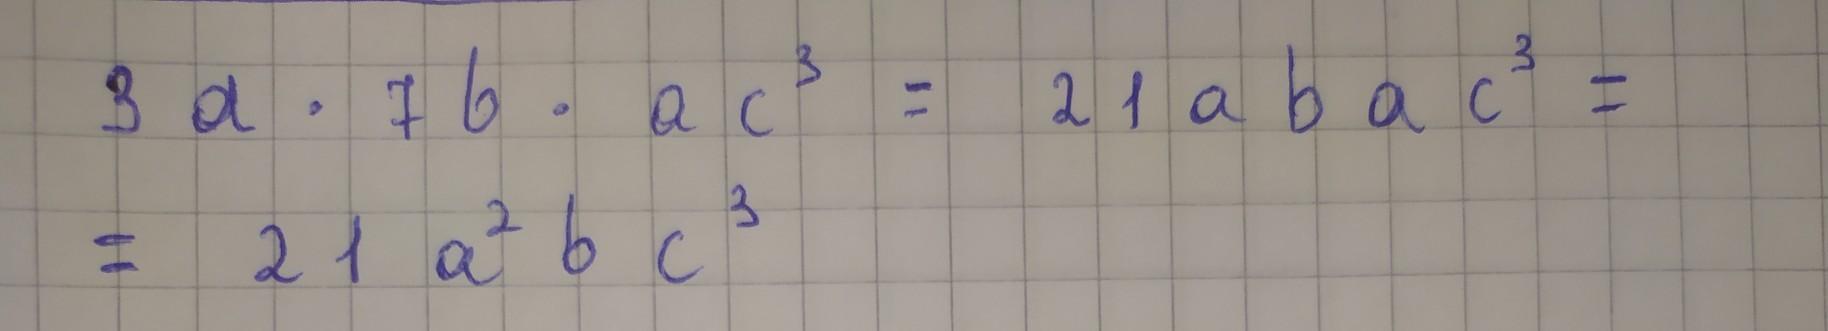 3a · 7b · ac³ = 21abac³ =
= 21a²bc³